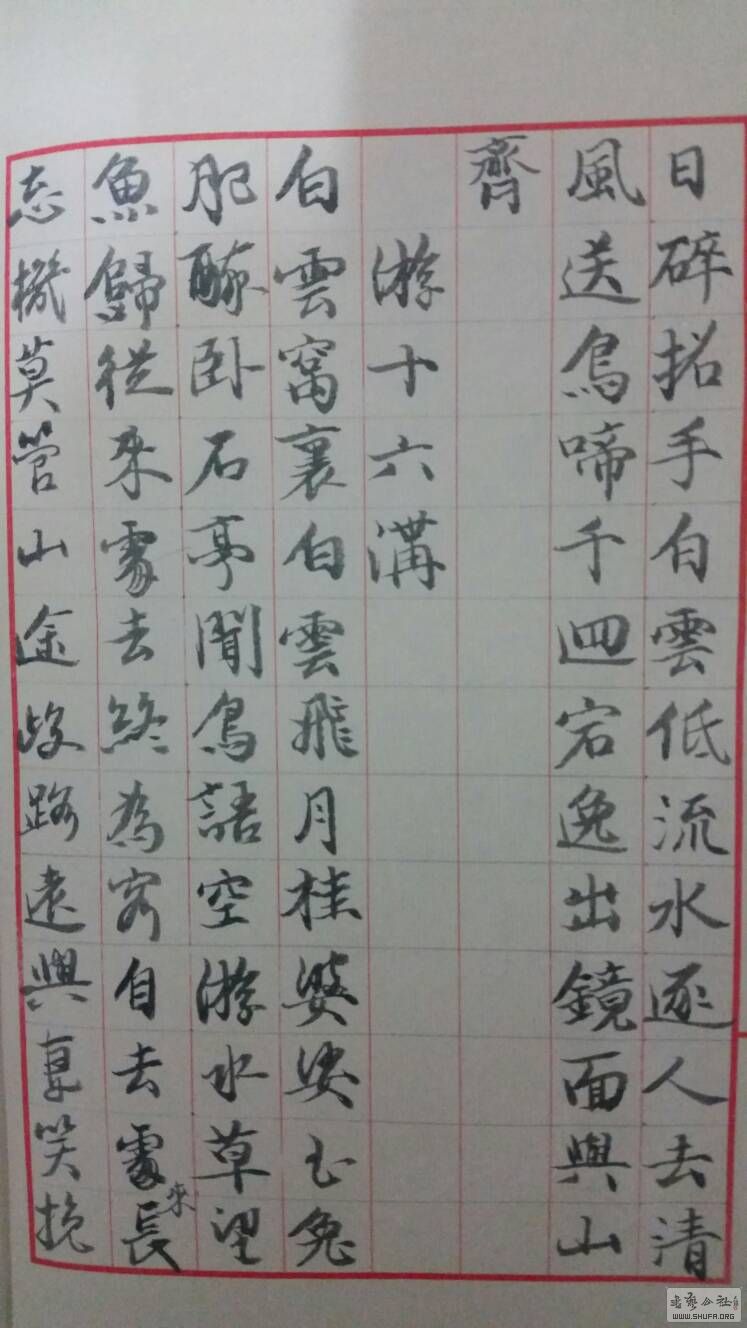 日碎招手白雲低流水逐人去清
風送鳥啼千迴宕逸出鏡面與山
齊
游十六溝
白雲窩裏白雲飛月桂婆娑玉兔
肥醉卧石亭聞鳥語空游水草望
魚歸從來處去終為客自去處來長
忘機莫管山途歧路遠興 笑挽
書藝公社
WWW.SHUFA.ORG